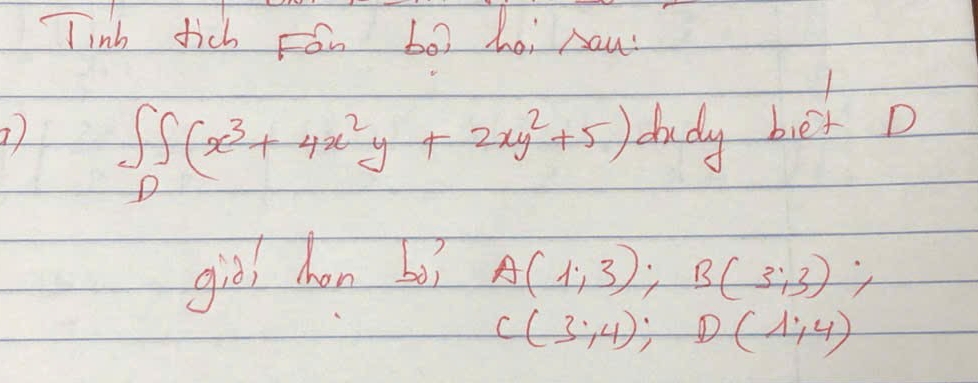 Tính tích Fân bội hai sau:
a) ∬(x³ + 4x²y + 2xy² + 5) dxdy biết D
D
giới hạn bởi A(1;3); B(3;3);
C(3;4); D(1;4)